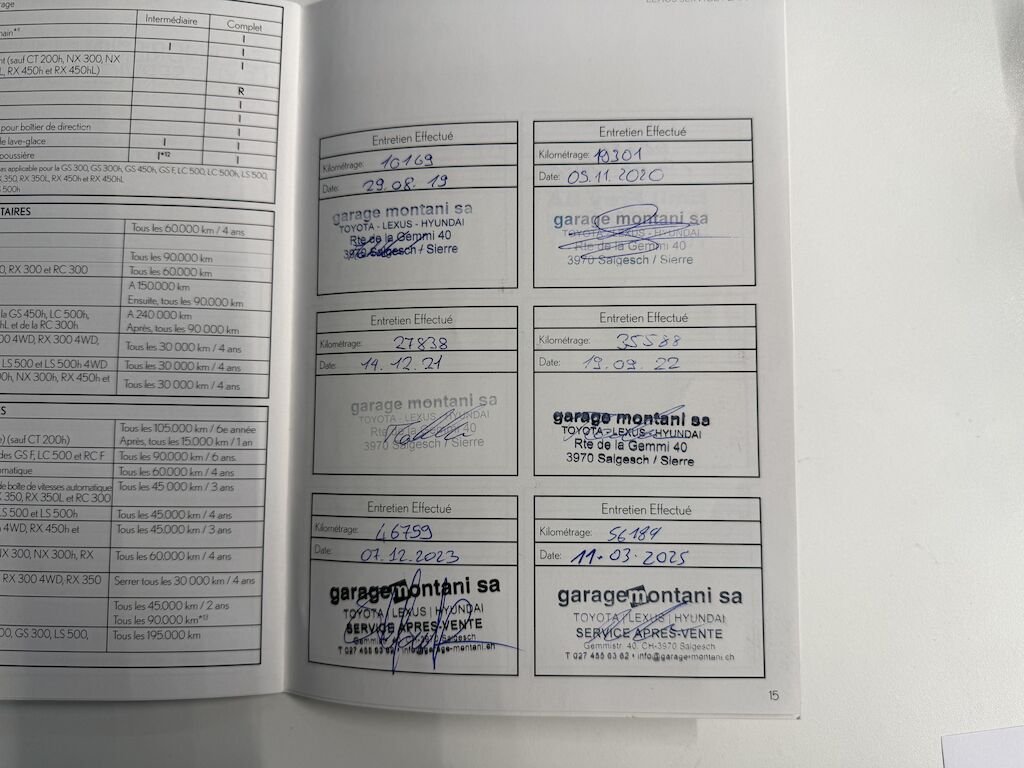 Intermédiaire
Complet
I
I
I
(sauf CT 200h, NX 300, NX
RX 450h et RX 450hL)
R
I
pour boîtier de direction
I
de lave-glace
I
I
poussière
I*12
I
applicable pour la GS 300, GS 300h, GS 450h, GS F, LC 500, LC 500h, LS 500,
350, RX 350L, RX 450h et RX 450hL
500h
TAIRES
Tous les 60.000 km / 4 ans
Tous les 90.000 km
RX 300 et RC 300
Tous les 60.000 km
A 150.000 km
Ensuite, tous les 90.000 km
la GS 450h, LC 500h,
et de la RC 300h
A 240 000 km
Après, tous les 90 000 km
4WD, RX 300 4WD, RX 300 4WD,
Tous les 30 000 km / 4 ans
LS 500 et LS 500h 4WD
Tous les 30 000 km / 4 ans
NX 300h, RX 450h et
Tous les 30 000 km / 4 ans
(sauf CT 200h)
Tous les 105.000 km / 6e année
Après, tous les 15.000 km / 1 an
des GS F, LC 500 et RC F
Tous les 90.000 km / 6 ans
Tous les 60.000 km / 4 ans
de boîte de vitesses automatique
350, RX 350L et RC 300
Tous les 45 000 km / 3 ans
LS 500 et LS 500h
Tous les 45.000 km / 4 ans
4WD, RX 450h et
Tous les 45.000 km / 3 ans
NX 300, NX 300h, RX
Tous les 60.000 km / 4 ans
RX 300 4WD, RX 350
Serrer tous les 30 000 km / 4 ans
Tous les 45.000 km / 2 ans
Tous les 90.000 km*13
GS 300, LS 500,
Tous les 195.000 km
Entretien Effectué
Kilométrage: 10169
Date: 29.08.19
garage montani sa
TOYOTA - LEXUS - HYUNDAI
Rte de la Gemmi 40
3970 Salgesch / Sierre
Entretien Effectué
Kilométrage: 19301
Date: 05.11.2020
garage montani sa
TOYOTA - LEXUS - HYUNDAI
Rte de la Gemmi 40
3970 Salgesch / Sierre
Entretien Effectué
Kilométrage: 27838
Date: 14.12.21
garage montani sa
TOYOTA - LEXUS - HYUNDAI
Rte de la Gemmi 40
3970 Salgesch / Sierre
Entretien Effectué
Kilométrage: 35588
Date: 19.09.22
garage montani sa
TOYOTA - LEXUS - HYUNDAI
Rte de la Gemmi 40
3970 Salgesch / Sierre
Entretien Effectué
Kilométrage: 46759
Date: 07.12.2023
garagemontani sa
TOYOTA | LEXUS | HYUNDAI
SERVICE APRES-VENTE
Gemmistr. 40, CH-3970 Salgesch
T 027 455 63 62 • info@garage-montani.ch
Entretien Effectué
Kilométrage: 56189
Date: 11.03.2025
garagemontani sa
TOYOTA | LEXUS | HYUNDAI
SERVICE APRES-VENTE
Gemmistr. 40, CH-3970 Salgesch
T 027 455 63 62 • info@garage-montani.ch
15